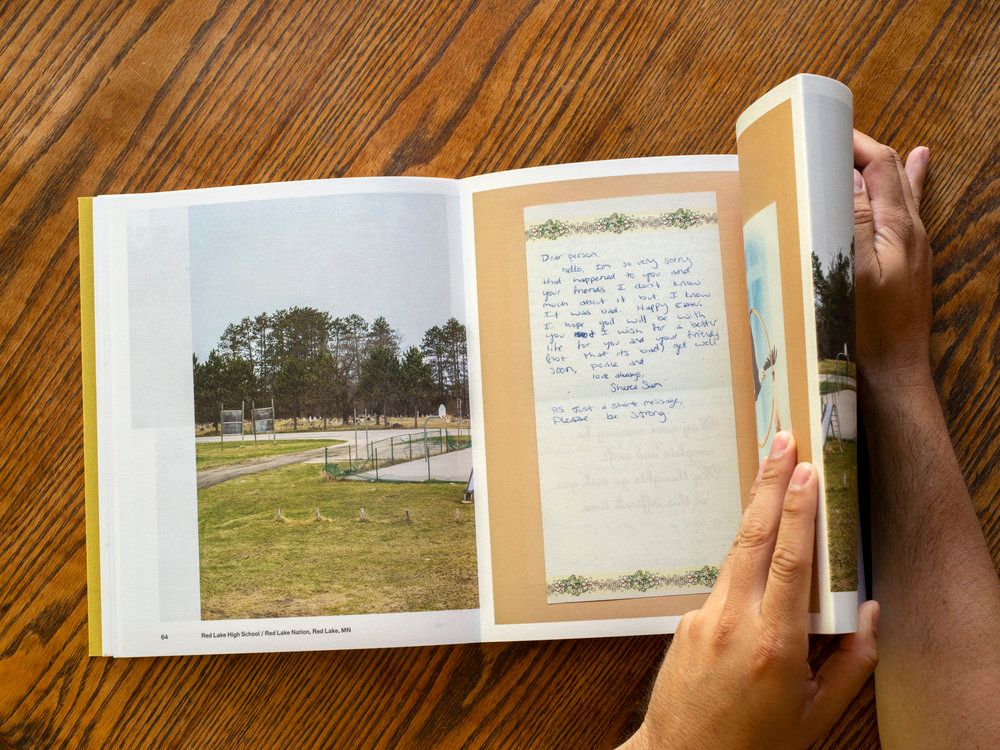 64 Red Lake High School / Red Lake Nation, Red Lake, MN
Dear person,
hello, Im so very sorry
that happened to you and
your friends I don't know
much about it but I know
It was bad. Happy Easter.
I hope god will be with
you I wish for a better
life for you and your friends
(not that its bad) get well
soon, peace and
love always,
Sheree Sam
P.S. Just a short message,
Please be strong
May your recovery be
complete and swift.
My thoughts go with you
at this difficult time.